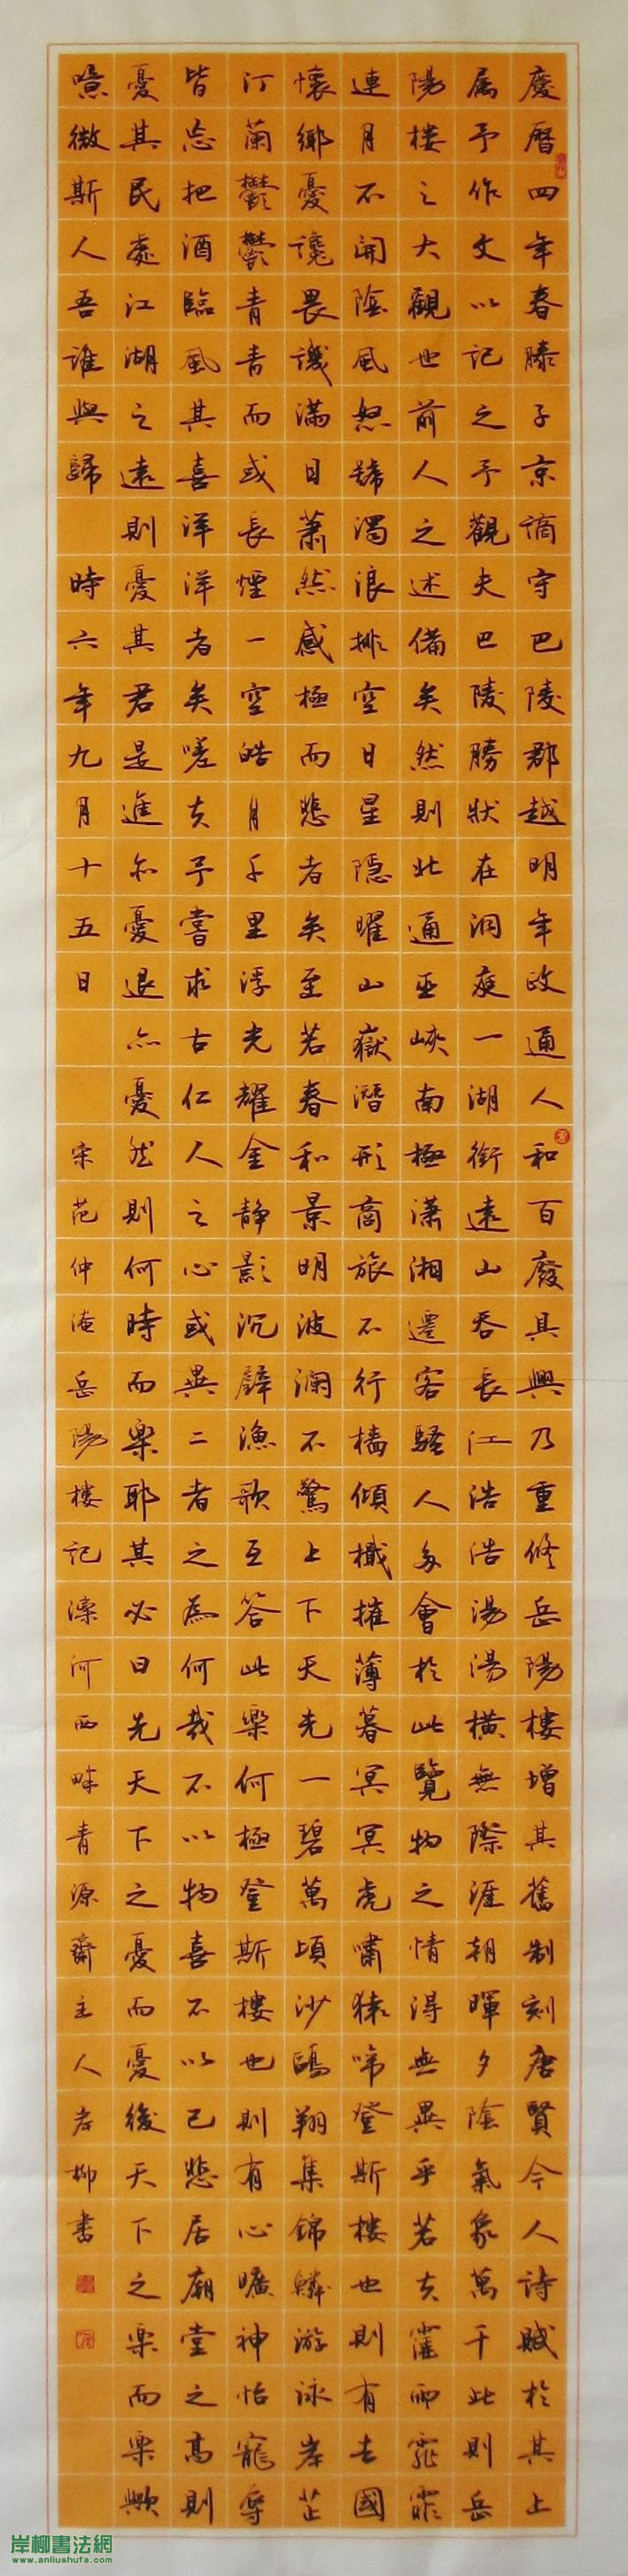 慶曆四年春滕子京謫守巴陵郡越明年政通人和百廢具興乃重修岳陽樓增其舊制刻唐賢今人詩賦於其上
属予作文以記之予觀夫巴陵勝狀在洞庭一湖銜遠山吞長江浩浩湯湯橫無際涯朝暉夕陰氣象萬千此則岳
陽樓之大觀也前人之述備矣然則北通巫峽南極瀟湘遷客騷人多會於此覽物之情得無異乎若夫霪雨霏霏
連月不開陰風怒號濁浪排空日星隱曜山嶽潛形商旅不行檣傾檝摧薄暮冥冥虎嘯猿啼登斯樓也則有去國
懷鄉憂讒畏譏滿目蕭然感極而悲者矣至若春和景明波瀾不驚上下天光一碧萬頃沙鷗翔集錦鱗游泳岸芷
汀蘭鬱鬱青青而或長煙一空皓月千里浮光耀金静影沉璧漁歌互答此樂何極登斯樓也則有心曠神怡寵辱
皆忘把酒臨風其喜洋洋者矣嗟夫予嘗求古仁人之心或異二者之為何哉不以物喜不以己悲居廟堂之高則
憂其民處江湖之遠則憂其君是進亦憂退亦憂然則何時而樂耶其必曰先天下之憂而憂後天下之樂而樂歟
噫微斯人吾誰與歸 時六年九月十五日 宋范仲淹岳陽樓記灤河西畔青源齋主人岸柳書
岸柳書法網
www.anliushufa.com